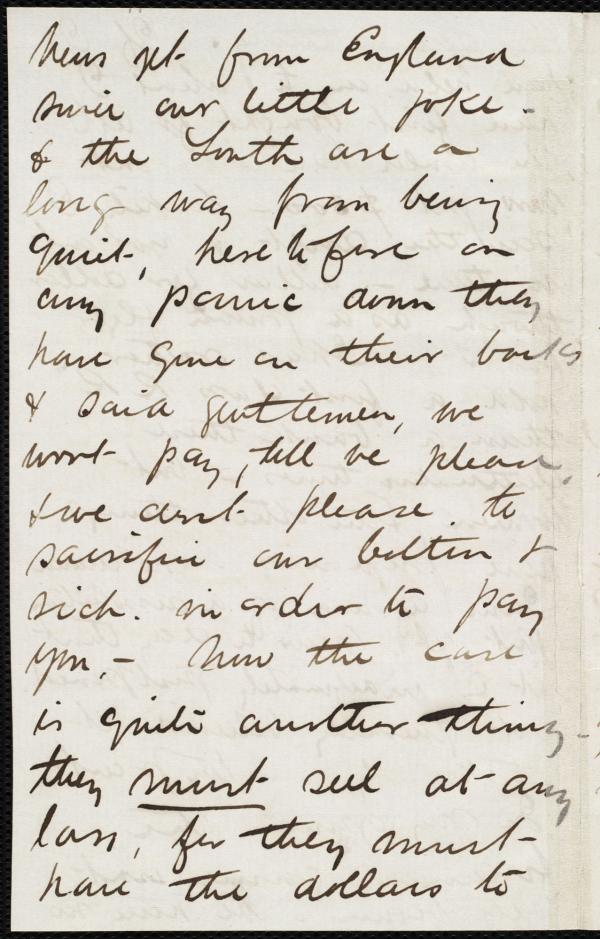 news yet from England
since our little joke -
& the South are a
long way from being
quiet, heretofore on
any panic down they
have gone on their backs
& said gentlemen, we
wont pay, till we please,
& we dont please to
sacrifice our cotton &
rice. in order to pay
you, - now the case
is quite another thing -
they must sell at any
loss, for they must
have the dollars to